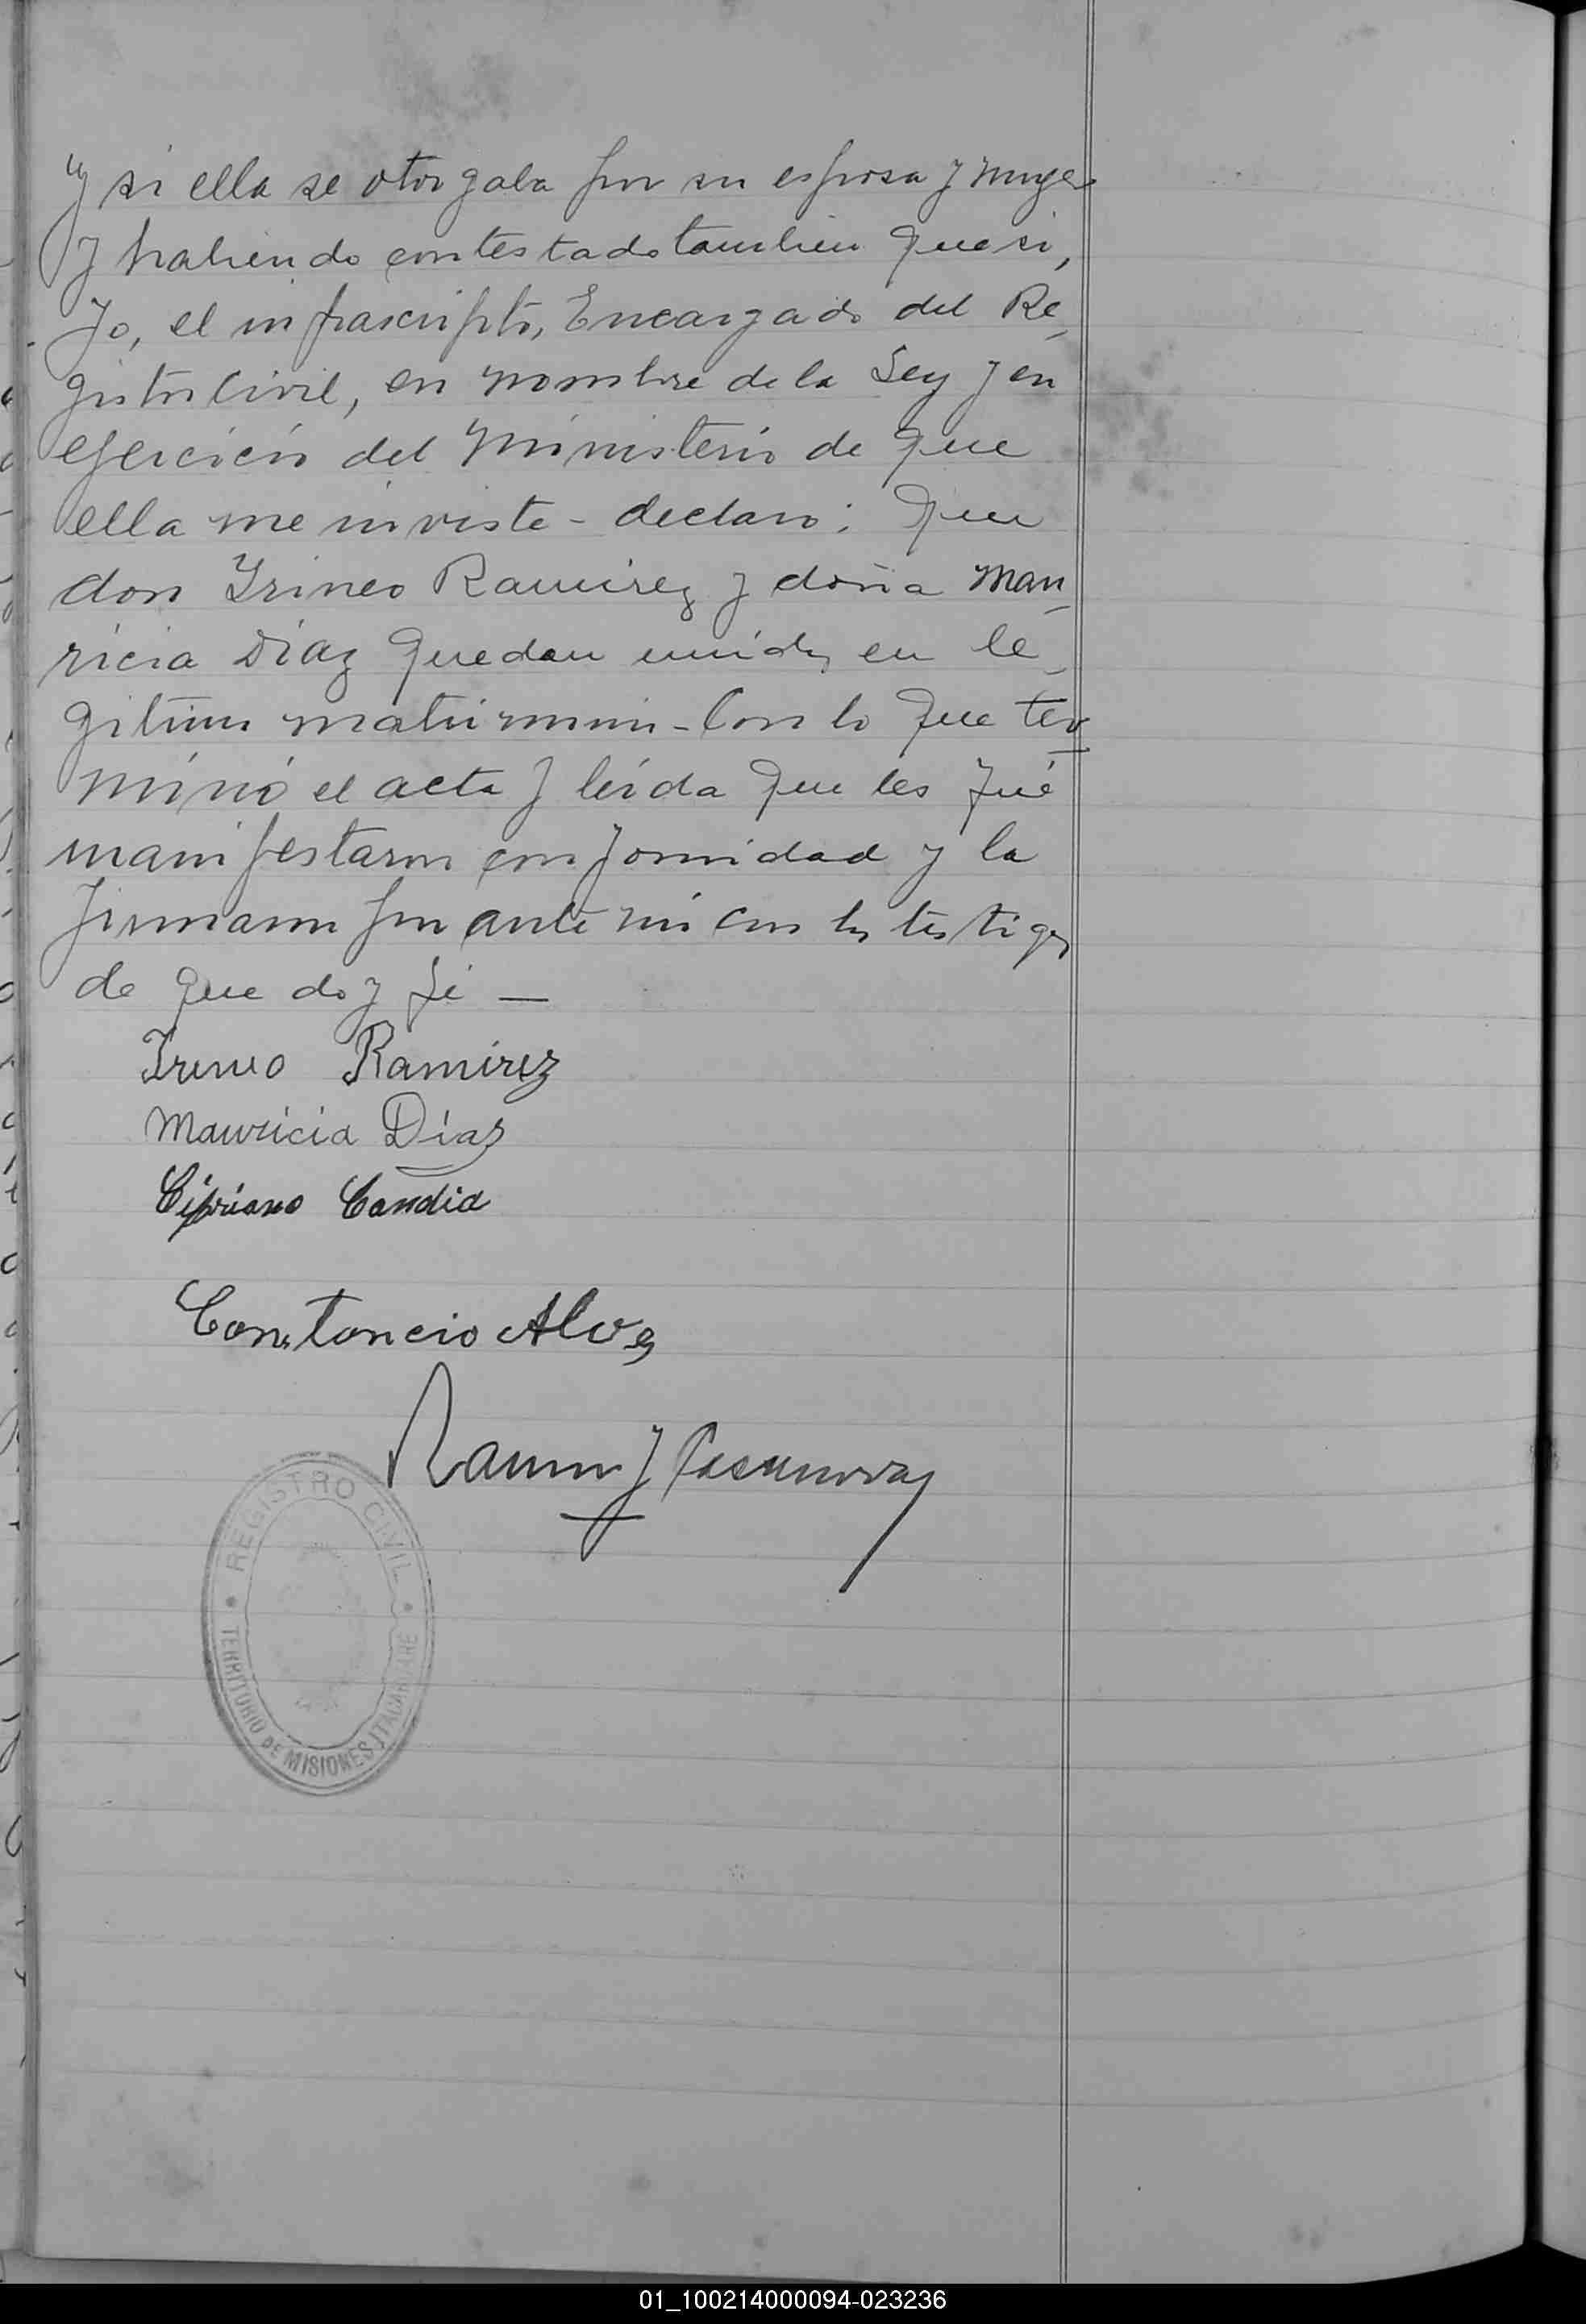 y si ella se otorgaba por su esposa y muger
y habiendo contestado tambien que si,
Yo, el infrascripto, Encargado del Re-
gistro Civil, en nombre de la Ley y en
ejercicio del ministerio de que
ella me inviste - declaro: que
don Irineo Ramirez y doña Mau-
ricia Diaz quedan unidos en le-
gitimo matrimonio - Con lo que ter-
minó el acta y leida que les fué
manifestaron conformidad y la
firmaron por ante mi con los testigos
de que doy fé —
Irineo Ramirez
Mauricia Díaz
Cipriano Candia
Constancio Alvez
Ramon J Casanovas
REGISTRO CIVIL
TERRITORIO DE MISIONES ITACARUARE
01_100214000094-023236